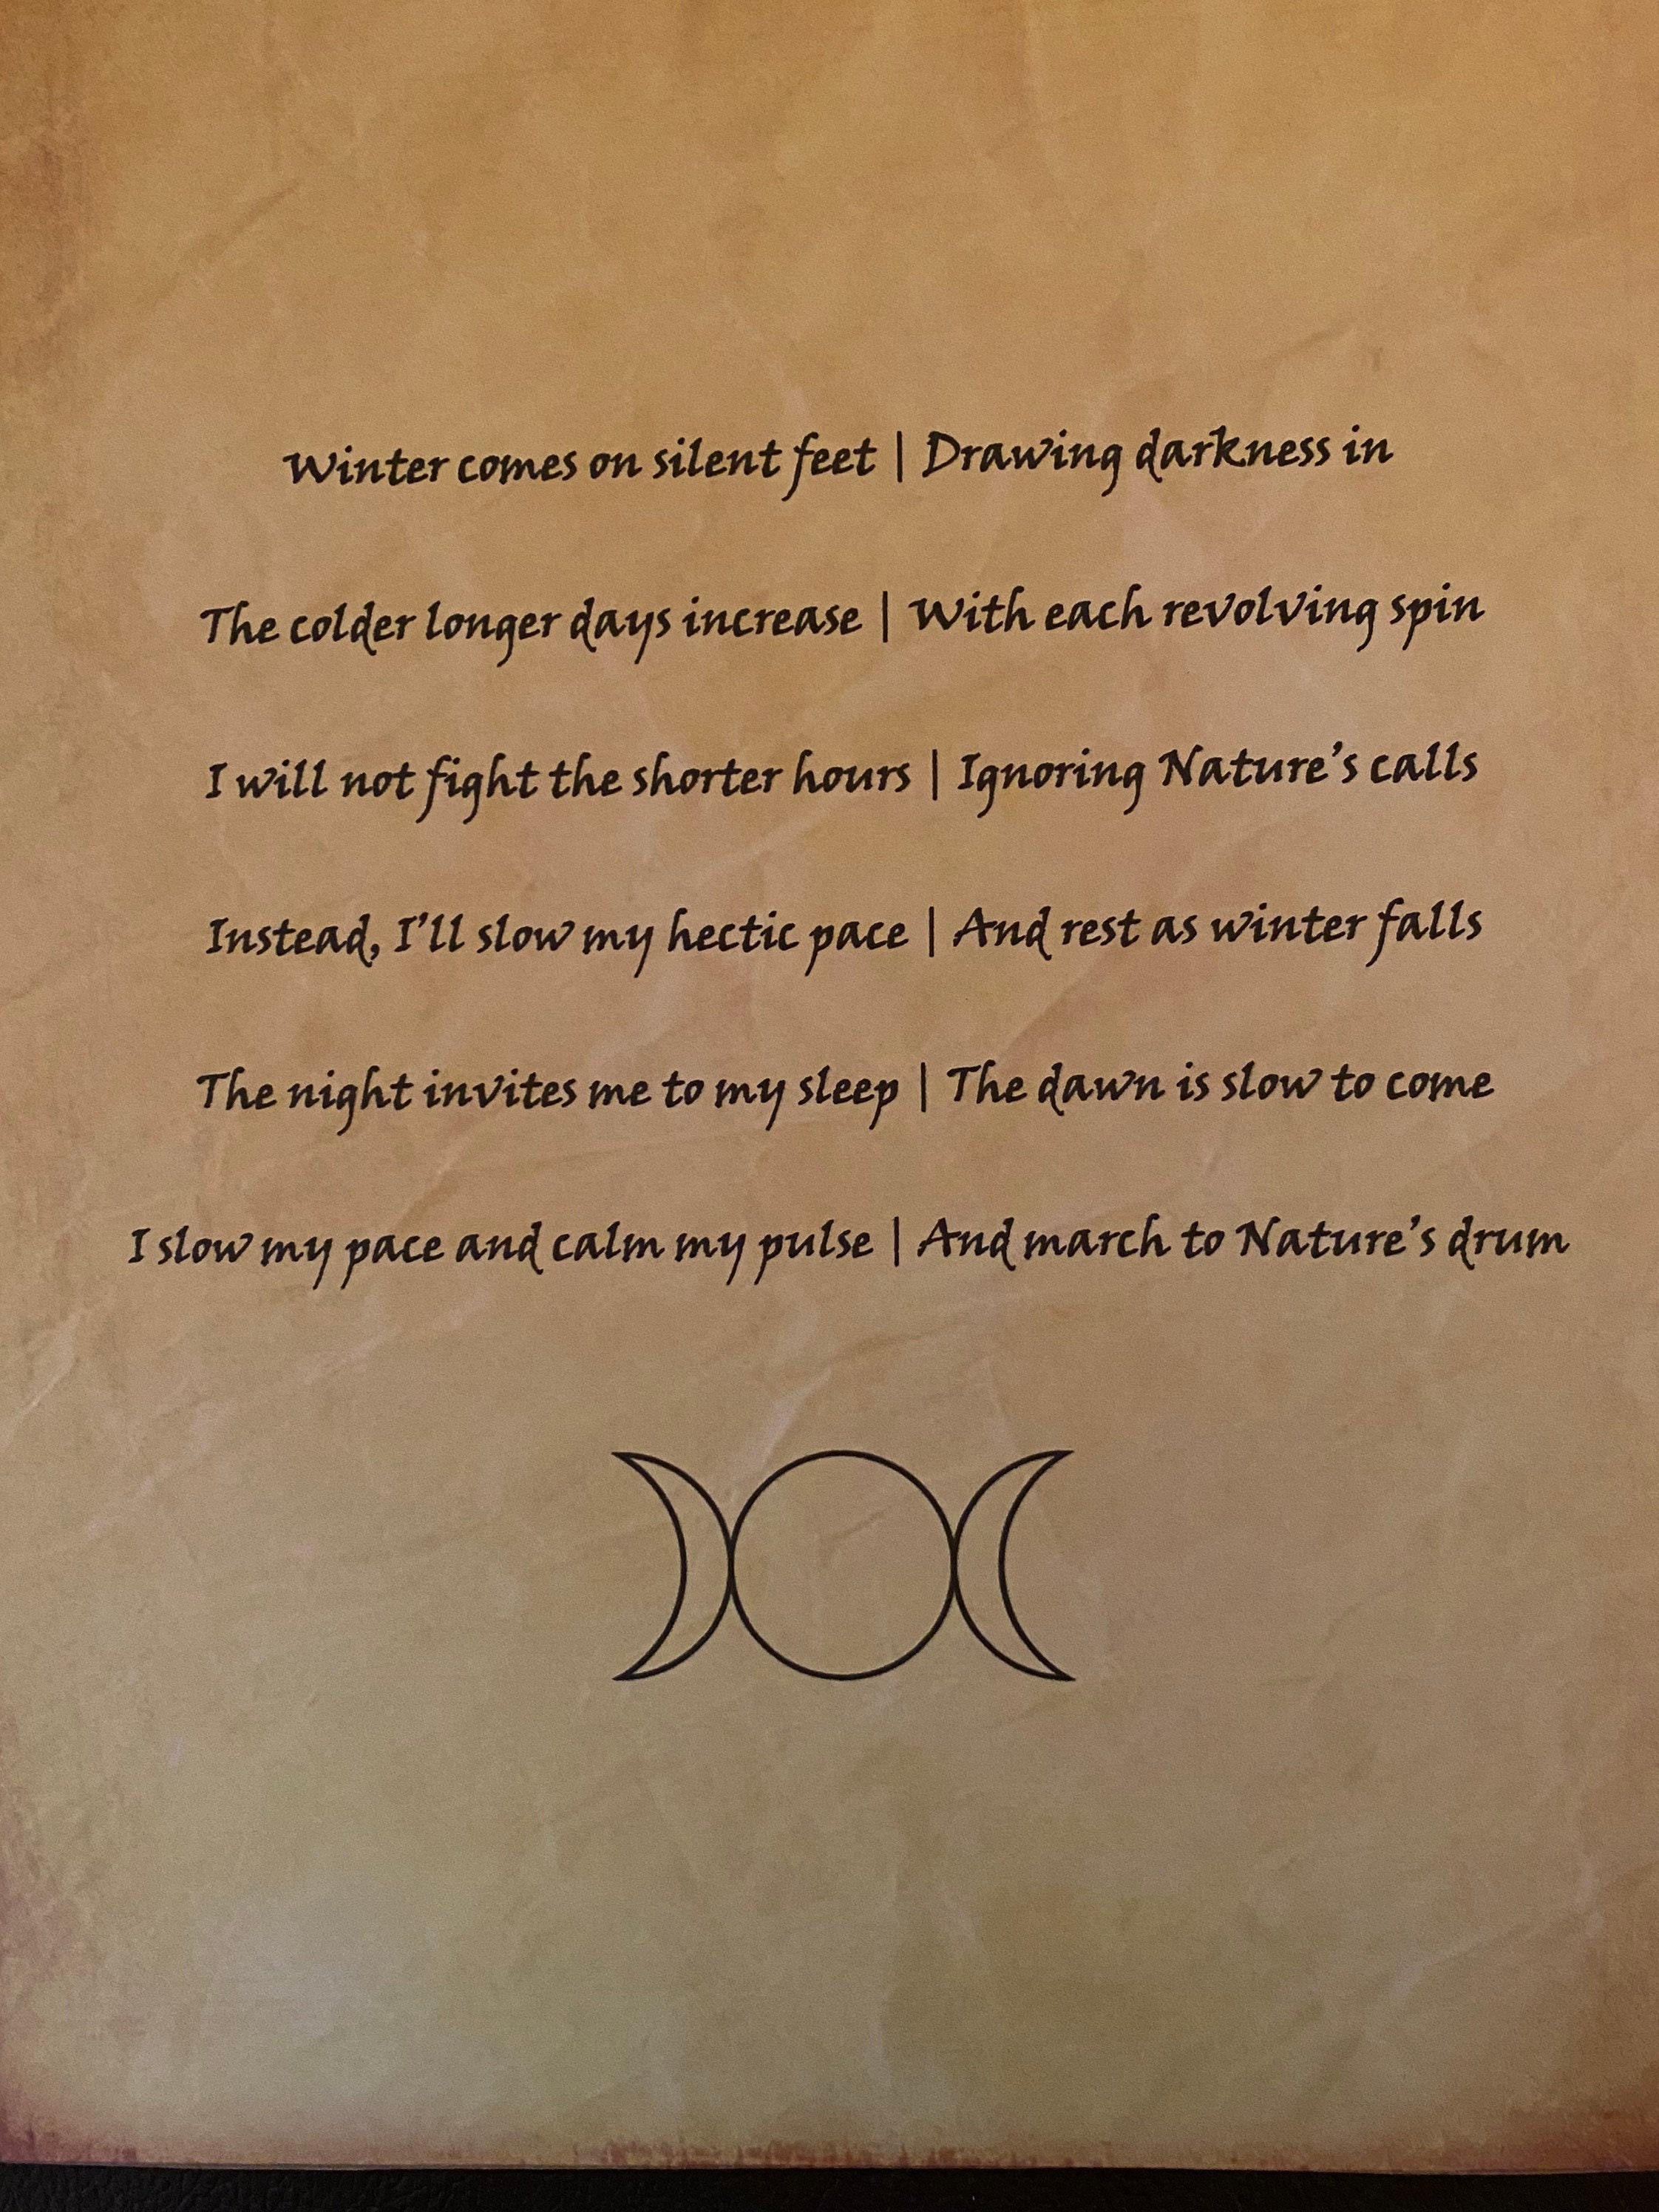 Winter comes on silent feet | Drawing darkness in
The colder longer days increase | With each revolving spin
I will not fight the shorter hours | Ignoring Nature's calls
Instead, I'll slow my hectic pace | And rest as winter falls
The night invites me to my sleep | The dawn is slow to come
I slow my pace and calm my pulse | And march to Nature's drum